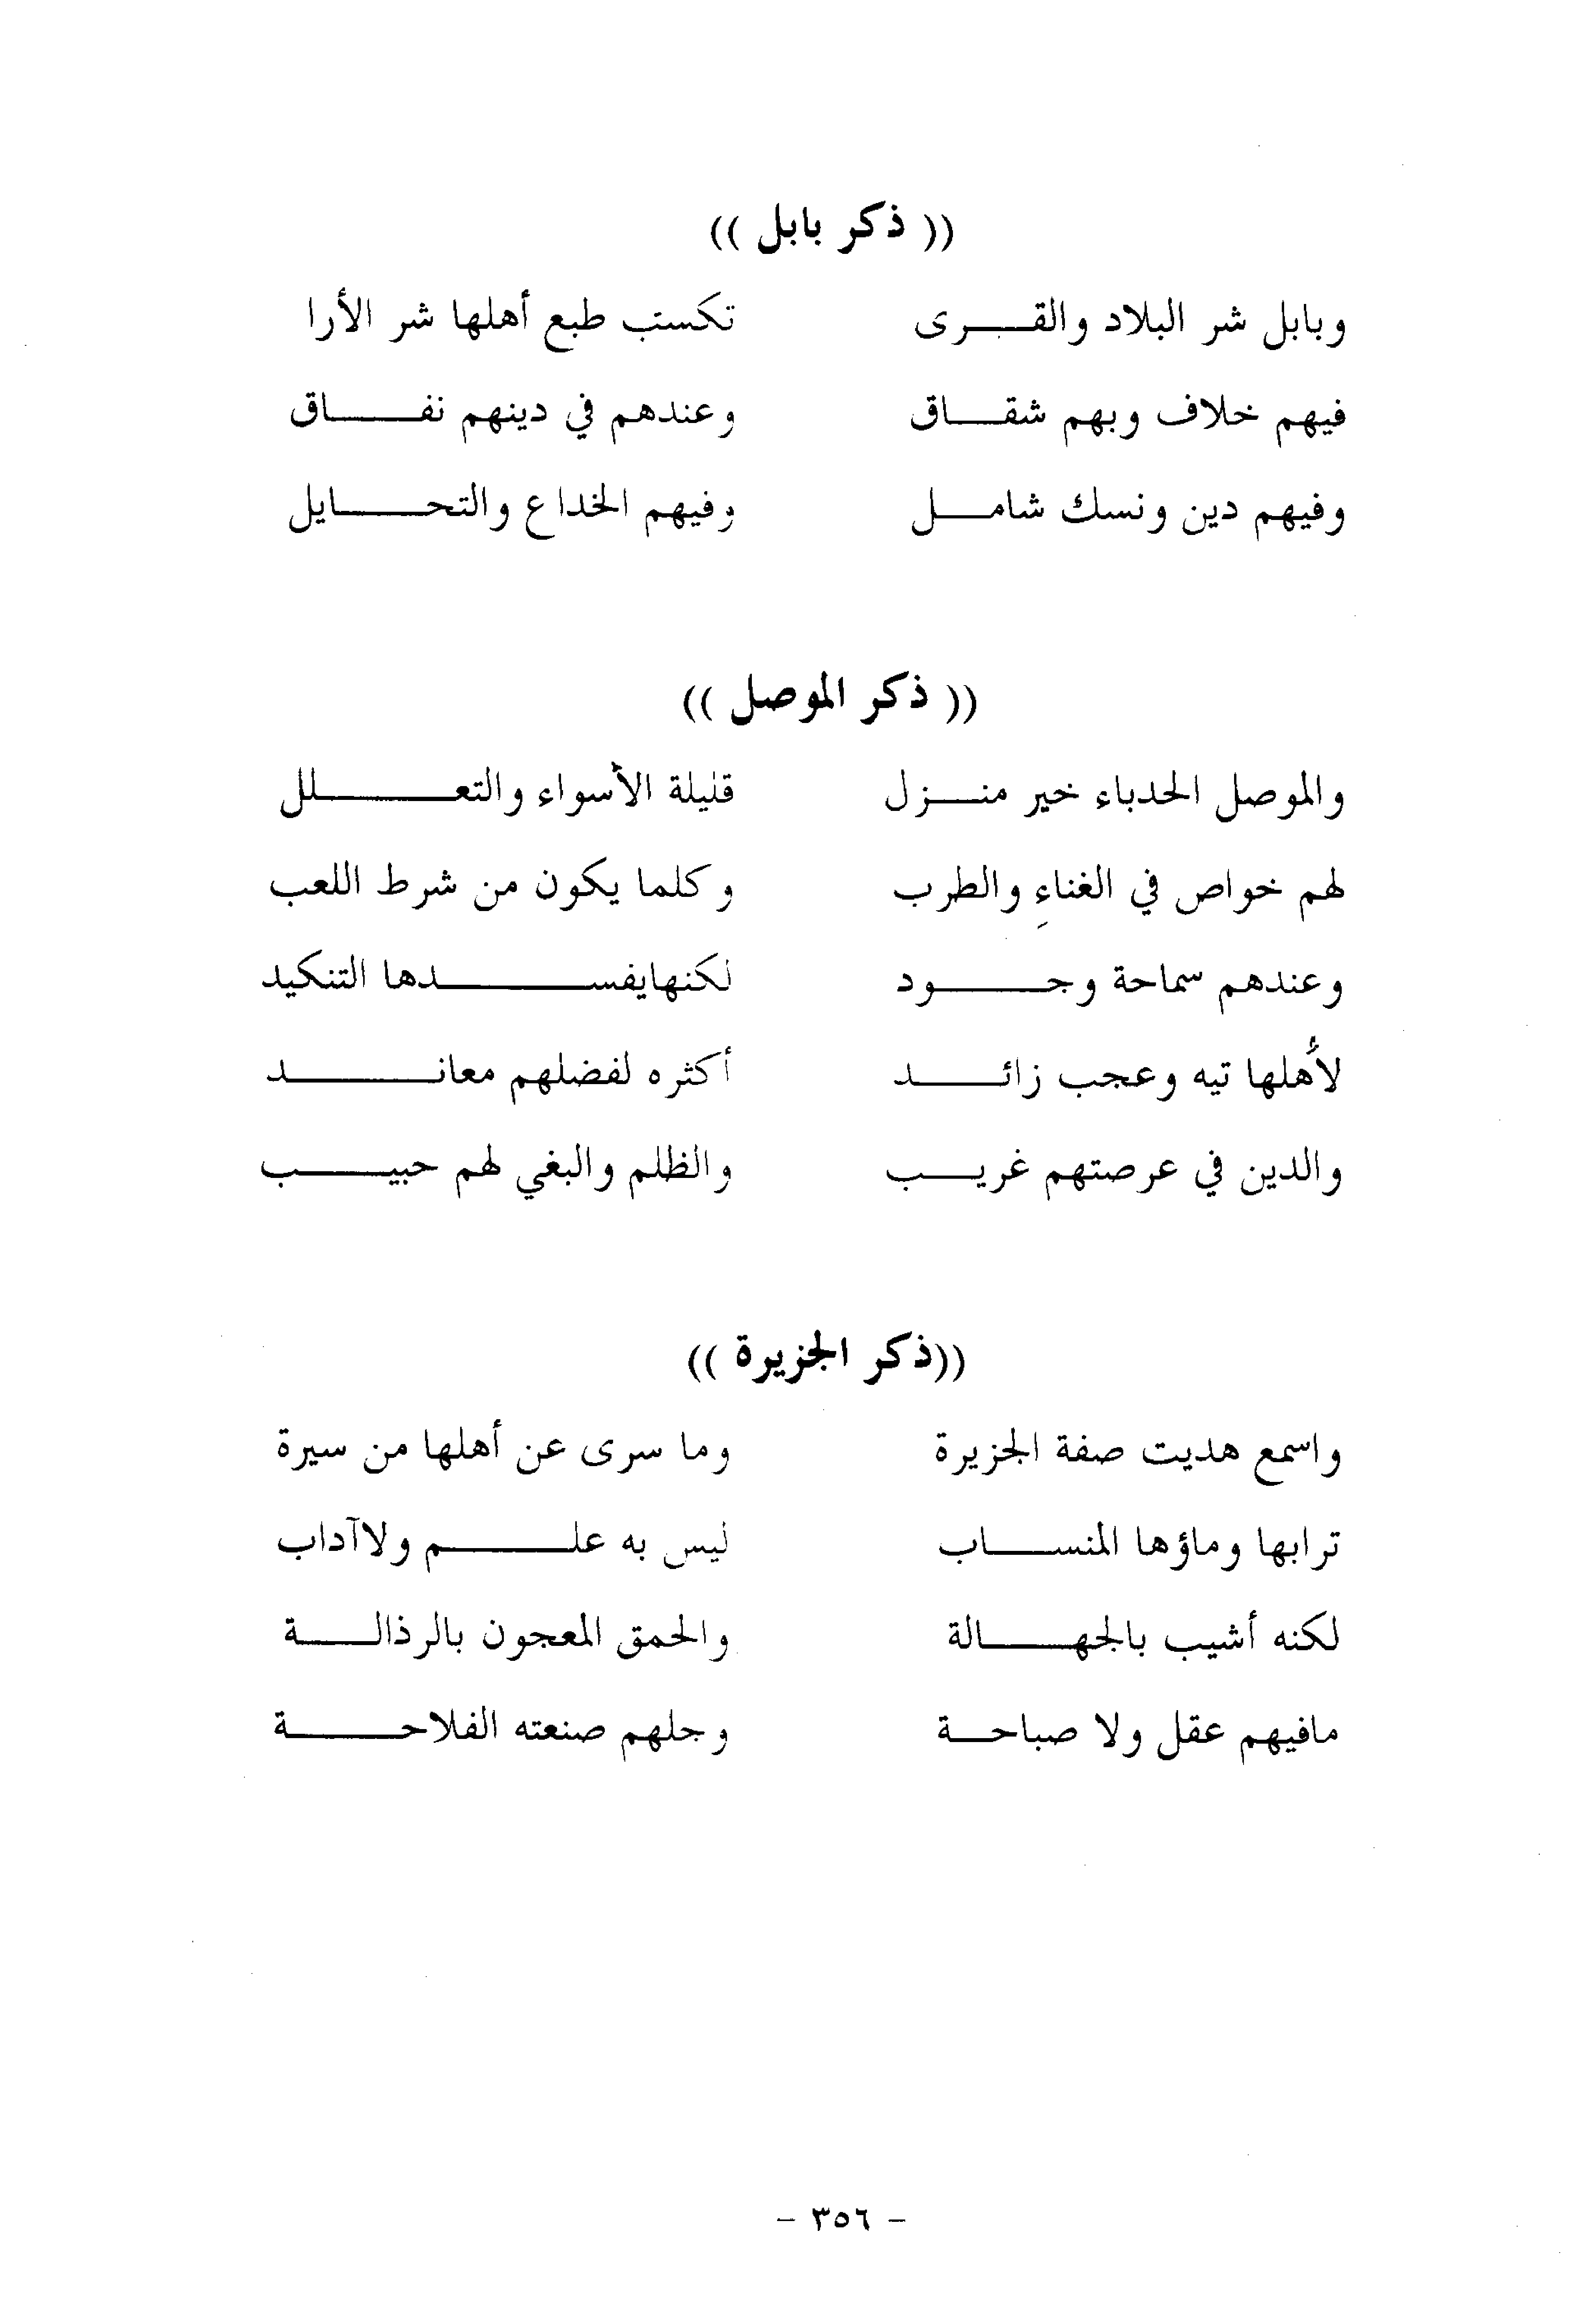 (( ذكر بابل ))
وبابل شر البلاد والقـــرى تكستب طبع أهلها شر الأرا
فيهم خلاف وبهم شقـــاق وعندهم في دينهم نفـــاق
وفيهم دين ونسك شامـــل وفيهم الخداع والتحـــايل
(( ذكر الموصل ))
والموصل الحدباء خير منـــزل قليلة الأسواء والتعـــلل
لهم خواص في الغناءِ والطرب وكلما يكون من شرط اللعب
وعندهم سماحة وجـــود لكنهايفســـدها التنكيد
لأهلها تيه وعجب زائـــد أكثره لفضلهم معانـــد
والدين في عرصتهم غريـــب والظلم والبغي لهم حبيـــب
((ذكر الجزيرة ))
واسمع هديت صفة الجزيرة وما سرى عن أهلها من سيرة
ترابها وماؤها المنســـاب ليس به علـــم ولاآداب
لكنه أشيب بالجهـــالة والحمق المعجون بالرذالـــة
مافيهم عقل ولا صباحـــة وجلهم صنعته الفلاحـــة
- ٣٥٦ -